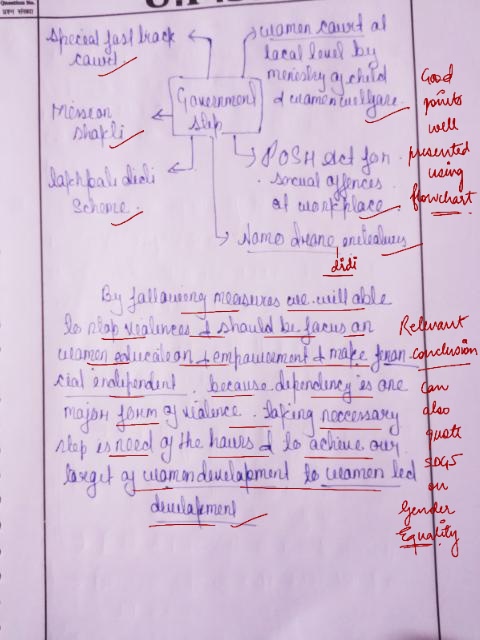 Question No.
प्रश्न संख्या
special fast track
court
women court at
local level by
ministry of child
& women welfare
Government
step
Mission
shakti
lakhpati didi
Scheme
POSH act for
sexual offences
at workplace
Namo drone
didi
Good
points
well
presented
using
flowchart
By following measures we will able
to stop violences & should be focus on
women education + empowerment & make finan
cial independent. because dependency is one
major form of violence. Taking neccessary
step is need of the hours & to achieve our
target of women development to women led
development
Relevant
conclusion
can
also
quote
SDG5
on
Gender
Equality